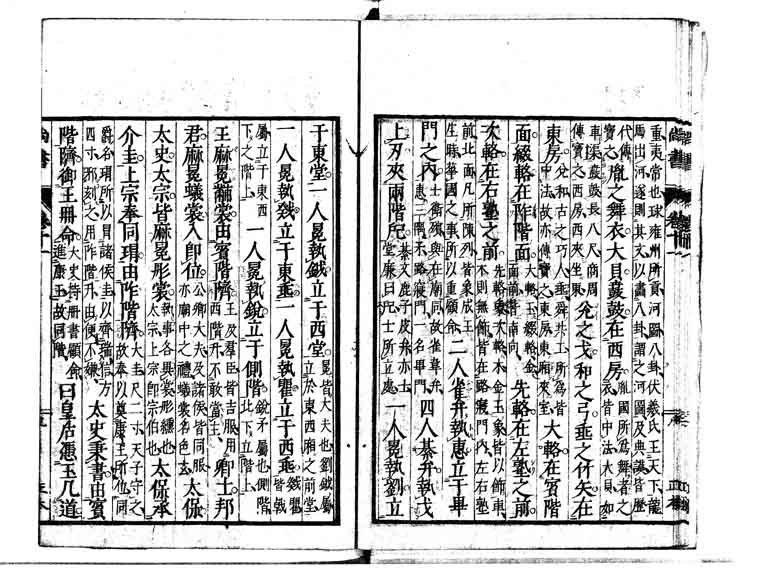 重夷常也球雍州所貢河圖八卦伏羲氏王天下龍
馬出河遂則其文以畫八卦謂之河圖及典謨皆歷
代傳寶之胤之舞衣大貝鼖鼓在西房胤國所為舞者之衣皆中法大貝如
車渠鼖鼓長八尺商周傳寶之西房西夾坐東兊之戈和之弓垂之竹矢在
東房兊和古之巧人垂舜共工所為皆中法故亦傳寶之東房東廂夾室大輅在賓階
面綴輅在阼階面大輅玉綴輅金面前皆南向先輅在左塾之前
次輅在右塾之前先輅象次輅木金玉象皆以飾車木則無飾皆在路寢門內左右塾
前北面凡所陳列皆象成王生時華國之事所以重顧命二人雀弁執惠立于畢
門之內士衛殯與在廟同故雀韋弁惠三隅矛路寢門一名畢門四人綦弁執戈
上刃夾兩階戺綦文鹿子皮弁亦士堂廉曰戺士所立處一人冕執劉立
于東堂一人冕執鉞立于西堂冕皆大夫也劉鉞屬立於東西廂之前堂
一人冕執戣立于東垂一人冕執瞿立于西垂戣瞿皆戟
屬立于東西下之階上一人冕執銳立于側階銳矛屬也側階北下立階上
王麻冕黼裳由賓階隮王及羣臣皆吉服用西階升不敢當主卿士邦
君麻冕蟻裳入即位公卿大夫及諸侯皆同服亦廟中之禮蟻裳名色玄太保
太史太宗皆麻冕彤裳執事各異裳彤纁也太宗上宗即宗伯也太保承
介圭上宗奉同瑁由阼階隮大圭尺二寸天子守之故奉以奠康王所位同
爵名瑁所以冒諸侯圭以齊瑞信方四寸邪刻之用阼階升由便不嫌太史秉書由賓
階隮御王冊命大史持冊書顧命進康王故同階曰皇后憑玉几道
尚書 卷十一